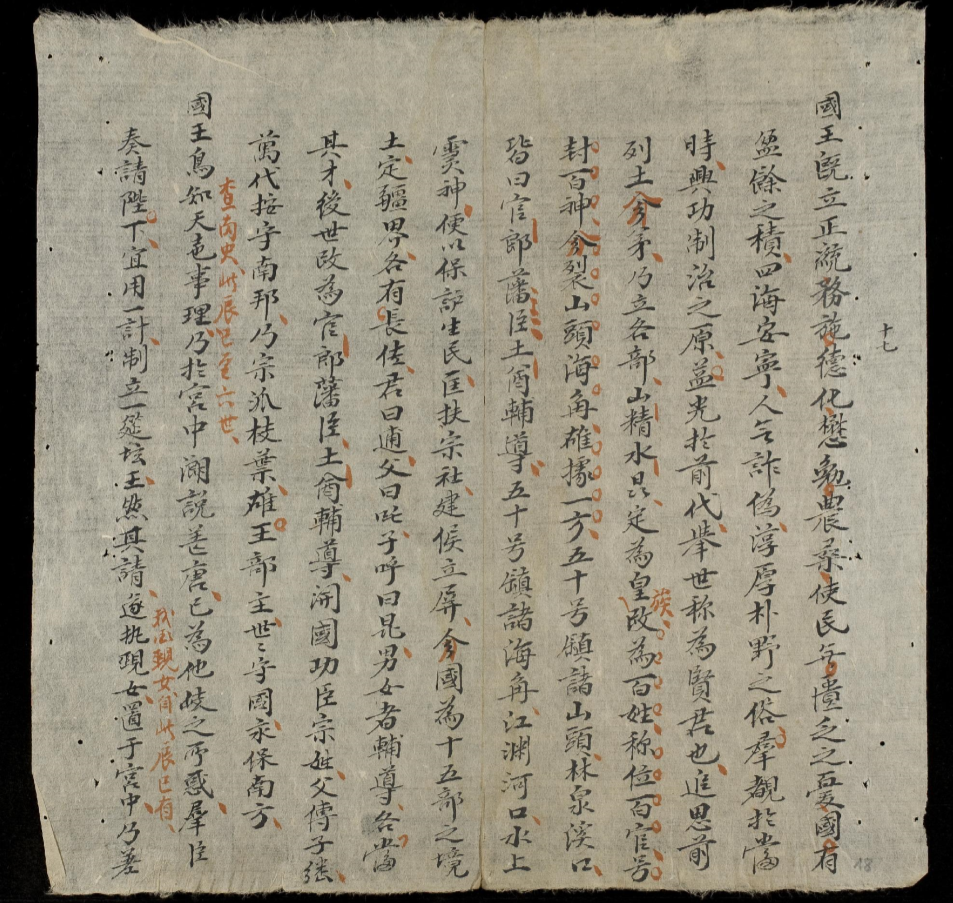 國王既立正統務施德化懋勉農桑使民無憒乏之憂國有
十七
盈餘之積四海安寧人無詐偽淳厚朴野之俗羣覩於當
時興功制治之原益光於前代舉世称為賢君也追思前
列土分茅乃立各部山精水昆定為皇改為百姓称位百官号
族
封百神分裂山頭海角雄據一方五十号鎮諸山頭林泉溪口
皆曰官郎藩臣土酋輔導五十号鎮諸海角江渊河口水上
灵神便以保護生民匡扶宗社建候立屏分國為十五部之境
土定疆界各有長佐君曰逋父曰吒子呼曰昆男女者輔導各當
其才後世改為官郎藩臣土酋輔導開國功臣宗姓父傳子继
萬代按守南邦乃宗派枝葉雄王部主世〻守國永保南方
查南史此辰已至六世
國王烏知天色事理乃於宮中 說善唐已為他岐之所惑羣臣
我國覡女自此辰已有
奏請陛下宜用一計制立一筵坛王然其請遂 覡女置于宮中乃差
18